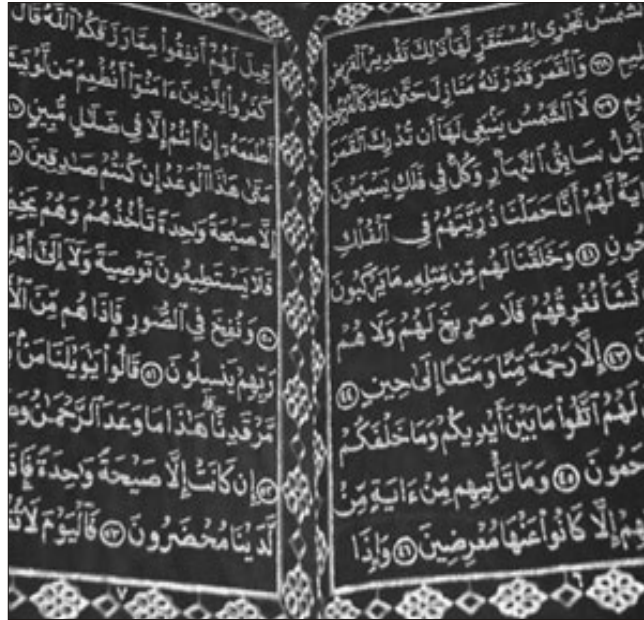 لشَّمْسُ تَجْرِى لِمُسْتَقَرٍّ لَّهَا ذَٰلِكَ تَقْدِيرُ ٱلْعَزِيزِ
لِيمِ ٣٨ وَٱلْقَمَرَ قَدَّرْنَٰهُ مَنَازِلَ حَتَّىٰ عَادَ كَٱلْعُرْجُونِ
يمِ ٣٩ لَا ٱلشَّمْسُ يَنۢبَغِى لَهَآ أَن تُدْرِكَ ٱلْقَمَرَ
لَّيْلُ سَابِقُ ٱلنَّهَارِ وَكُلٌّ فِى فَلَكٍ يَسْبَحُونَ
يَةٌ لَّهُمْ أَنَّا حَمَلْنَا ذُرِّيَّتَهُمْ فِى ٱلْفُلْكِ
حُونِ ٤١ وَخَلَقْنَا لَهُم مِّن مِّثْلِهِۦ مَا يَرْكَبُونَ
نَّشَأْ نُغْرِقْهُمْ فَلَا صَرِيخَ لَهُمْ وَلَا هُمْ
نَ ٤٣ إِلَّا رَحْمَةً مِّنَّا وَمَتَٰعًا إِلَىٰ حِينٍ ٤٤
لَهُمُ ٱتَّقُوا۟ مَا بَيْنَ أَيْدِيكُمْ وَمَا خَلْفَكُمْ
حَمُونَ ٤٥ وَمَا تَأْتِيهِم مِّنْ ءَايَةٍ مِّنْ
هِمْ إِلَّا كَانُوا۟ عَنْهَا مُعْرِضِينَ ٤٦ وَإِذَا
قِيلَ لَهُمْ أَنفِقُوا۟ مِمَّا رَزَقَكُمُ ٱللَّهُ قَالَ
كَفَرُوا۟ لِلَّذِينَ ءَامَنُوٓا۟ أَنُطْعِمُ مَن لَّوْ يَشَا
أَطْعَمَهُۥٓ إِنْ أَنتُمْ إِلَّا فِى ضَلَٰلٍ مُّبِينٍ ٤٧
مَتَىٰ هَٰذَا ٱلْوَعْدُ إِن كُنتُمْ صَٰدِقِينَ ٤٨
إِلَّا صَيْحَةً وَٰحِدَةً تَأْخُذُهُمْ وَهُمْ يَخِصِّ
فَلَا يَسْتَطِيعُونَ تَوْصِيَةً وَلَآ إِلَىٰٓ أَهْلِ
٥٠ وَنُفِخَ فِى ٱلصُّورِ فَإِذَا هُم مِّنَ ٱلْأَ
رَبِّهِمْ يَنسِلُونَ ٥١ قَالُوا۟ يَٰوَيْلَنَا مَنۢ
مَّرْقَدِنَا هَٰذَا مَا وَعَدَ ٱلرَّحْمَٰنُ وَصَ
٥٢ إِن كَانَتْ إِلَّا صَيْحَةً وَٰحِدَةً فَإِذَ
لَّدَيْنَا مُحْضَرُونَ ٥٣ فَٱلْيَوْمَ لَا تُظْ